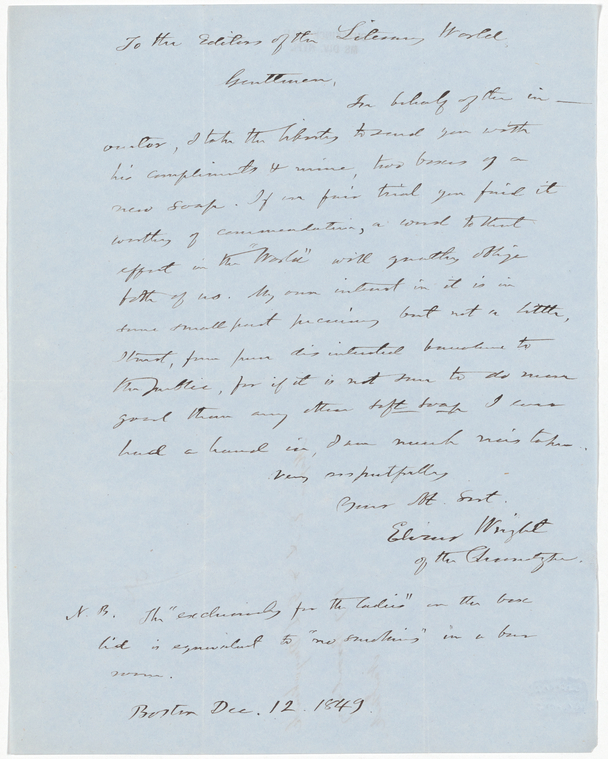 To the Editors of the Literary World.
Gentlemen,
In behalf of the in-
ventor, I take the liberty to send you with
his compliments & mine, two boxes of a
new soap. If on fair trial you find it
worthy of commendation, a word to that
effect in the "World" will greatly oblige
both of us. My own interest in it is in
some small part pecuniary but not a little,
I trust, from pure disinterested benevolence to
the public, for if it is not sure to do more
good than any other soft soap I ever
had a hand in, I am much mistaken.
Very respectfully
Your Ob. Svt.
Elizur Wright
of the Chronotype.
N. B. The "exclusively for the ladies" on the box
lid is equivalent to "no smoking" in a bar
room.
Boston Dec. 12. 1849.